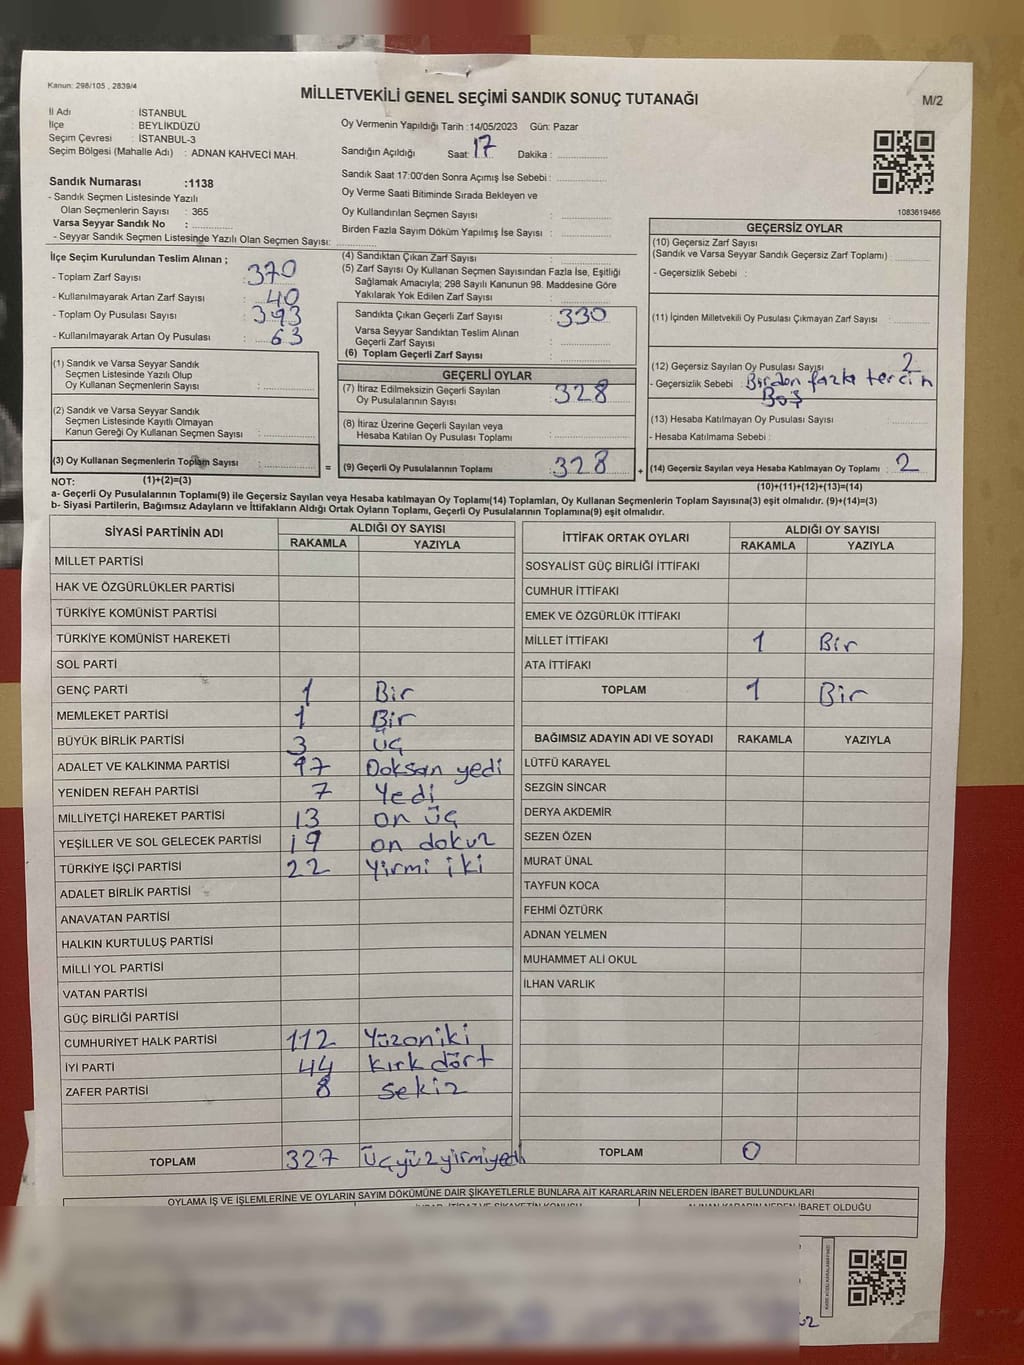 Kanun: 298/105 , 2839/4
MİLLETVEKİLİ GENEL SEÇİMİ SANDIK SONUÇ TUTANAĞI
M/2
İl Adı : İSTANBUL
İlçe : BEYLİKDÜZÜ
Seçim Çevresi : İSTANBUL-3
Seçim Bölgesi (Mahalle Adı) : ADNAN KAHVECİ MAH.
Oy Vermenin Yapıldığı Tarih :14/05/2023 Gün: Pazar
Sandığın Açıldığı Saat: 17 Dakika :
Sandık Saat 17:00'den Sonra Açımış İse Sebebi :
Oy Verme Saati Bitiminde Sırada Bekleyen ve
Oy Kullandırılan Seçmen Sayısı :
Birden Fazla Sayım Döküm Yapılmış İse Sayısı :
1083619466
Sandık Numarası :1138
- Sandık Seçmen Listesinde Yazılı
Olan Seçmenlerin Sayısı : 365
Varsa Seyyar Sandık No :
- Seyyar Sandık Seçmen Listesinde Yazılı Olan Seçmen Sayısı:
İlçe Seçim Kurulundan Teslim Alınan ;
- Toplam Zarf Sayısı : 370
- Kullanılmayarak Artan Zarf Sayısı : 40
- Toplam Oy Pusulası Sayısı : 393
- Kullanılmayarak Artan Oy Pusulası : 63
(1) Sandık ve Varsa Seyyar Sandık
Seçmen Listesinde Yazılı Olup
Oy Kullanan Seçmenlerin Sayısı :
(2) Sandık ve Varsa Seyyar Sandık
Seçmen Listesinde Kayıtlı Olmayan
Kanun Gereği Oy Kullanan Seçmen Sayısı :
(3) Oy Kullanan Seçmenlerin Toplam Sayısı :
(1)+(2)=(3)
(4) Sandıktan Çıkan Zarf Sayısı :
(5) Zarf Sayısı Oy Kullanan Seçmen Sayısından Fazla İse, Eşitliği
Sağlamak Amacıyla; 298 Sayılı Kanunun 98. Maddesine Göre
Yakılarak Yok Edilen Zarf Sayısı :
Sandıkta Çıkan Geçerli Zarf Sayısı : 330
Varsa Seyyar Sandıktan Teslim Alınan
Geçerli Zarf Sayısı :
(6) Toplam Geçerli Zarf Sayısı :
GEÇERLİ OYLAR
(7) İtiraz Edilmeksizin Geçerli Sayılan
Oy Pusulalarının Sayısı : 328
(8) İtiraz Üzerine Geçerli Sayılan veya
Hesaba Katılan Oy Pusulası Toplamı :
= (9) Geçerli Oy Pusulalarının Toplamı : 328 +
GEÇERSİZ OYLAR
(10) Geçersiz Zarf Sayısı
(Sandık ve Varsa Seyyar Sandık Geçersiz Zarf Toplamı) :
- Geçersizlik Sebebi :
(11) İçinden Milletvekili Oy Pusulası Çıkmayan Zarf Sayısı :
(12) Geçersiz Sayılan Oy Pusulası Sayısı : 2
- Geçersizlik Sebebi : Birden fazla tercih
Boş
(13) Hesaba Katılmayan Oy Pusulası Sayısı :
- Hesaba Katılmama Sebebi :
(14) Geçersiz Sayılan veya Hesaba Katılmayan Oy Toplamı : 2
(10)+(11)+(12)+(13)=(14)
NOT:
a- Geçerli Oy Pusulalarının Toplamı(9) ile Geçersiz Sayılan veya Hesaba katılmayan Oy Toplamı(14) Toplamları, Oy Kullanan Seçmenlerin Toplam Sayısına(3) eşit olmalıdır. (9)+(14)=(3)
b- Siyasi Partilerin, Bağımsız Adayların ve İttifakların Aldığı Ortak Oyların Toplamı, Geçerli Oy Pusulalarının Toplamına(9) eşit olmalıdır.
SİYASİ PARTİNİN ADI ALDIĞI OY SAYISI
RAKAMLA YAZIYLA
MİLLET PARTİSİ
HAK VE ÖZGÜRLÜKLER PARTİSİ
TÜRKİYE KOMÜNİST PARTİSİ
TÜRKİYE KOMÜNİST HAREKETİ
SOL PARTİ
GENÇ PARTİ 1 Bir
MEMLEKET PARTİSİ 1 Bir
BÜYÜK BİRLİK PARTİSİ 3 üç
ADALET VE KALKINMA PARTİSİ 97 Doksan yedi
YENİDEN REFAH PARTİSİ 7 Yedi
MİLLİYETÇİ HAREKET PARTİSİ 13 on üç
YEŞİLLER VE SOL GELECEK PARTİSİ 19 on dokuz
TÜRKİYE İŞÇİ PARTİSİ 22 Yirmi iki
ADALET BİRLİK PARTİSİ
ANAVATAN PARTİSİ
HALKIN KURTULUŞ PARTİSİ
MİLLİ YOL PARTİSİ
VATAN PARTİSİ
GÜÇ BİRLİĞİ PARTİSİ
CUMHURİYET HALK PARTİSİ 112 Yüzoniki
İYİ PARTİ 44 kırk dört
ZAFER PARTİSİ 8 Sekiz
TOPLAM 327 Üçyüzyirmiyedi
İTTİFAK ORTAK OYLARI ALDIĞI OY SAYISI
RAKAMLA YAZIYLA
SOSYALİST GÜÇ BİRLİĞİ İTTİFAKI
CUMHUR İTTİFAKI
EMEK VE ÖZGÜRLÜK İTTİFAKI
MİLLET İTTİFAKI 1 Bir
ATA İTTİFAKI
TOPLAM 1 Bir
BAĞIMSIZ ADAYIN ADI VE SOYADI RAKAMLA YAZIYLA
LÜTFÜ KARAYEL
SEZGİN SİNCAR
DERYA AKDEMİR
SEZEN ÖZEN
MURAT ÜNAL
TAYFUN KOCA
FEHMİ ÖZTÜRK
ADNAN YELMEN
MUHAMMET ALİ OKUL
İLHAN VARLIK
TOPLAM 0
OYLAMA İŞ VE İŞLEMLERİNE VE OYLARIN SAYIM DÖKÜMÜNE DAİR ŞİKAYETLERLE BUNLARA AİT KARARLARIN NELERDEN İBARET BULUNDUKLARI
İBARET OLDUĞU